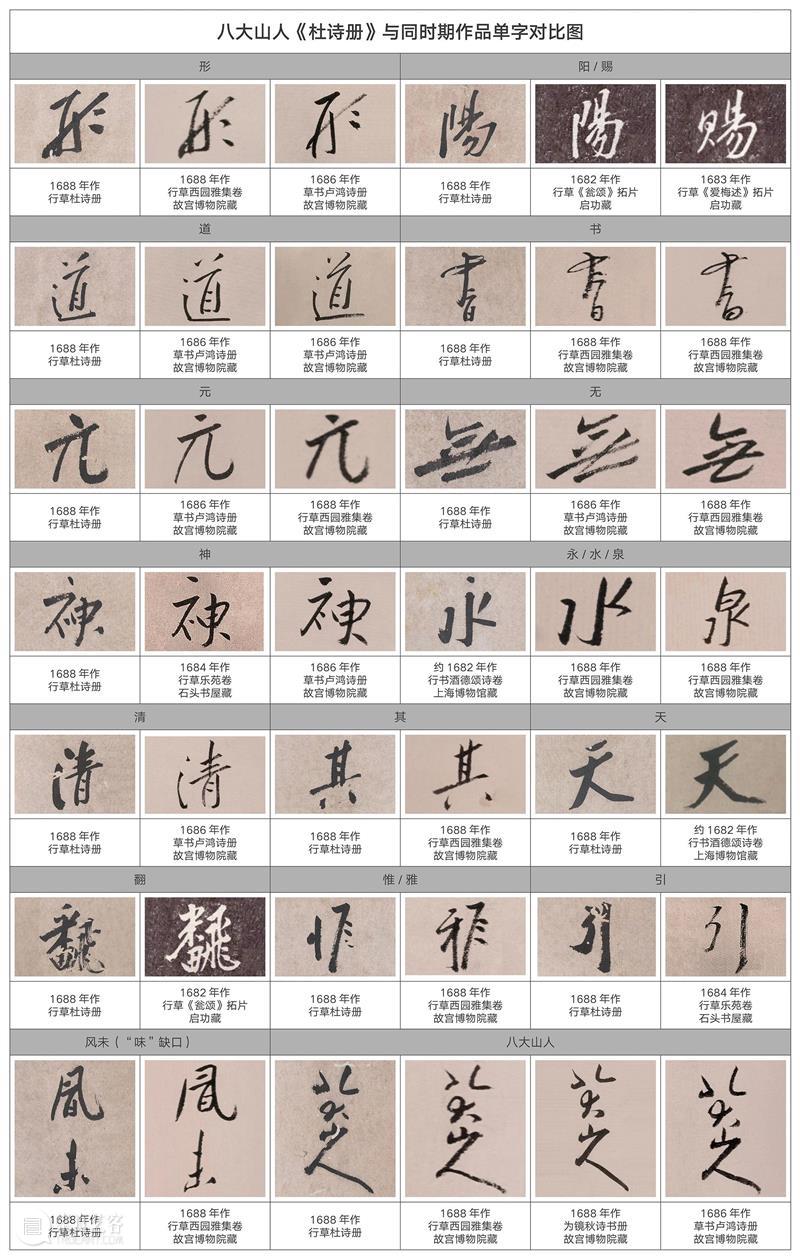 八大山人《杜诗册》与同时期作品单字对比图
形
阳 / 赐
1688 年作
行草杜诗册
1688 年作
行草西园雅集卷
故宫博物院藏
1686 年作
草书卢鸿诗册
故宫博物院藏
1688 年作
行草杜诗册
1682 年作
行草《瓮颂》拓片
启功藏
1683 年作
行草《爱梅述》拓片
启功藏
道
书
1688 年作
行草杜诗册
1686 年作
草书卢鸿诗册
故宫博物院藏
1686 年作
草书卢鸿诗册
故宫博物院藏
1688 年作
行草杜诗册
1688 年作
行草西园雅集卷
故宫博物院藏
1688 年作
行草西园雅集卷
故宫博物院藏
元
无
1688 年作
行草杜诗册
1686 年作
草书卢鸿诗册
故宫博物院藏
1688 年作
行草西园雅集卷
故宫博物院藏
1688 年作
行草杜诗册
1686 年作
草书卢鸿诗册
故宫博物院藏
1688 年作
行草西园雅集卷
故宫博物院藏
神
永 / 水 / 泉
1688 年作
行草杜诗册
1684 年作
行草乐苑卷
石头书屋藏
1686 年作
草书卢鸿诗册
故宫博物院藏
约 1682 年作
行书酒德颂诗卷
上海博物馆藏
1688 年作
行草西园雅集卷
故宫博物院藏
1688 年作
行草西园雅集卷
故宫博物院藏
清
其
天
1688 年作
行草杜诗册
1686 年作
草书卢鸿诗册
故宫博物院藏
1688 年作
行草杜诗册
1688 年作
行草西园雅集卷
故宫博物院藏
1688 年作
行草杜诗册
约 1682 年作
行书酒德颂诗卷
上海博物馆藏
翻
惟 / 雅
引
1688 年作
行草杜诗册
1682 年作
行草《瓮颂》拓片
启功藏
1688 年作
行草杜诗册
1688 年作
行草西园雅集卷
故宫博物院藏
1688 年作
行草杜诗册
1684 年作
行草乐苑卷
石头书屋藏
风未（“味”缺口）
八大山人
1688 年作
行草杜诗册
1688 年作
行草西园雅集卷
故宫博物院藏
1688 年作
行草杜诗册
1688 年作
行草西园雅集卷
故宫博物院藏
1688 年作
为镜秋诗书册
故宫博物院藏
1686 年作
草书卢鸿诗册
故宫博物院藏